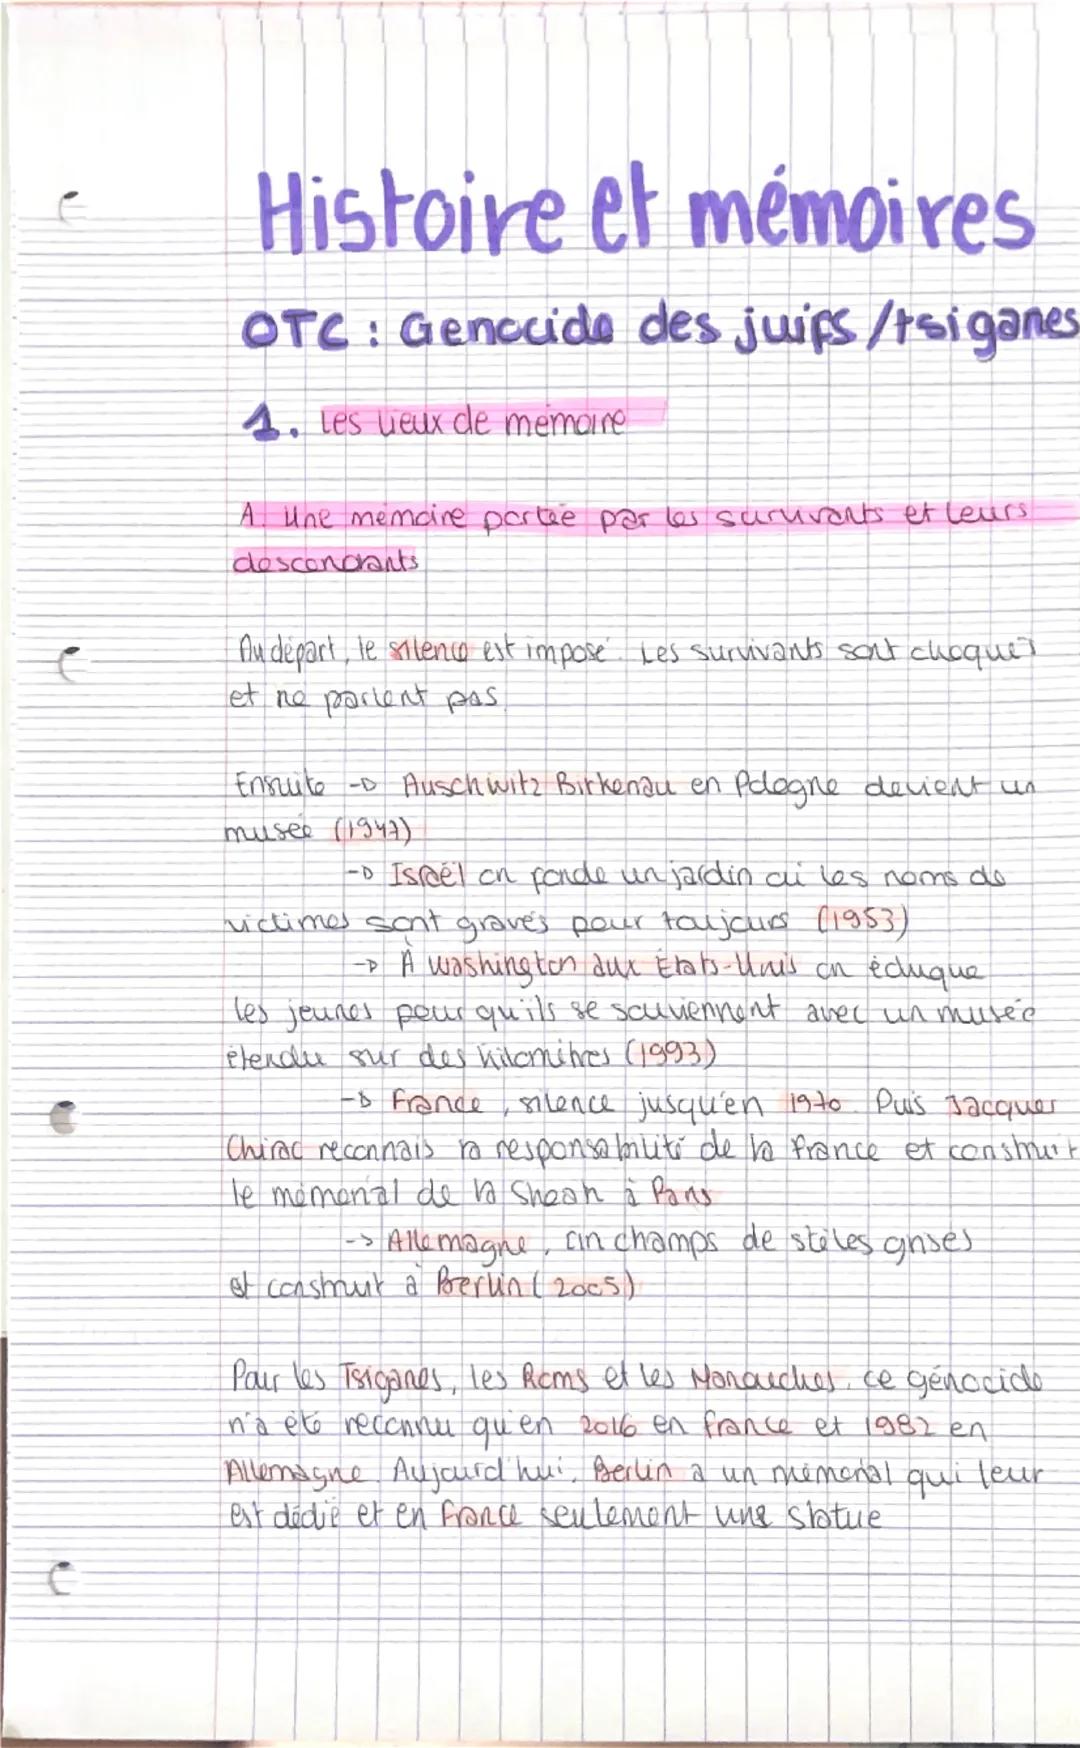 Histoire et mémoires
OTC : Genocide des juifs /tsiganes
1. Les lieux de mémoire
A. Une mémoire portée par les survivants et leurs
descendants
Au départ, le silence est imposé. Les survivants sont choqués
et ne parlent pas.
Ensuite → Auschwitz Birkenau en Pologne devient un
musée (1947)
→ Israël on fonde un jardin où les noms de
victimes sont gravés pour toujours (1953)
→ À Washington aux États-Unis on éduque
les jeunes pour qu'ils se souviennent avec un musée
étendu sur des kilomètres (1993)
→ France, silence jusqu'en 1970. Puis Jacques
Chirac reconnais la responsabilité de la france et construit
le mémorial de la Shoah à Paris
→ Allemagne, un champs de stèles grises
est construit à Berlin (2005)
Pour les Tsiganes, les Roms et les Manouches, ce génocide
n'a été reconnu qu'en 2016 en france et 1982 en
Allemagne. Aujourd'hui, Berlin a un mémorial qui leur
est dédié et en France seulement une statue